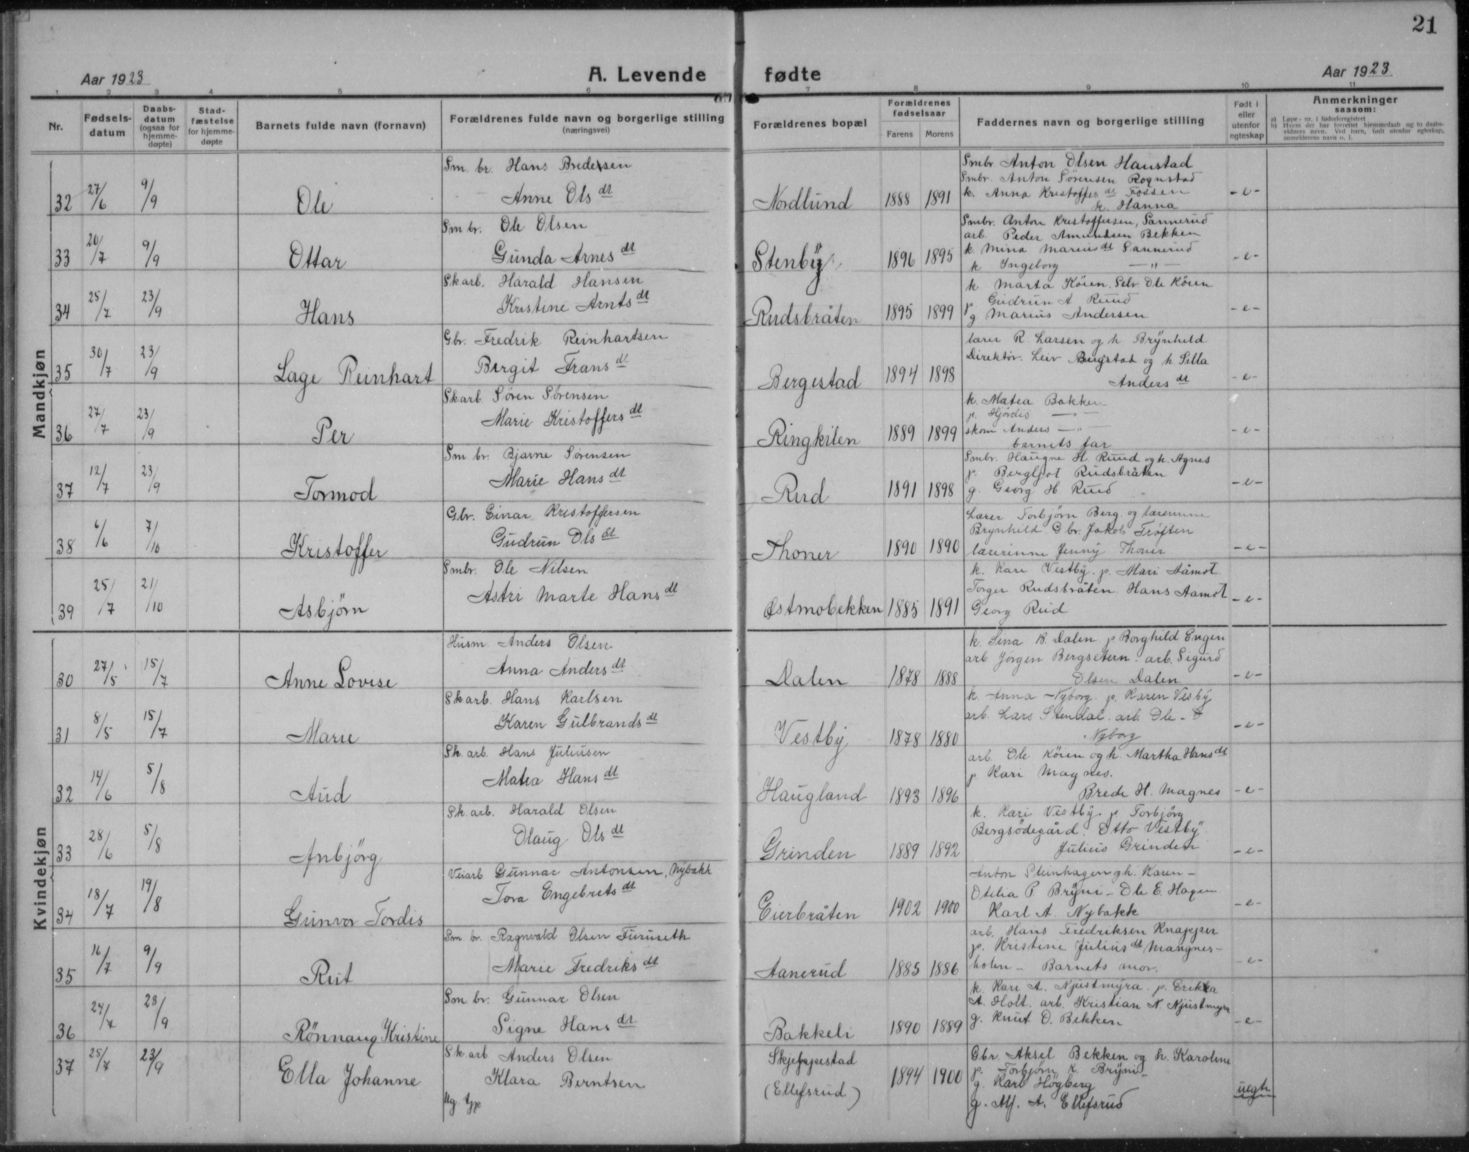 21
Aar 1923
A. Levende fødte
Aar 1923
1 2 3 4 5 6 7 8 9 10 11
Nr.
Fødsels-datum
Daabs-datum (ogsaa for hjemme-døpte)
Stad-fæstelse for hjemme-døpte
Barnets fulde navn (fornavn)
Forældrenes fulde navn og borgerlige stilling (næringsvei)
Forældrenes bopæl
Forældrenes fødselsaar
Farens
Morens
Faddernes navn og borgerlige stilling
Født i eller utenfor egteskap
Anmerkninger saasom:
Mandkjøn
Smbr. Hans Bredesen
Smbr Anton Olsen Hanstad
Smbr. Anton Sørensen Rognstad
32 27/6 9/9 Ole Anne Ols dt Nordlund 1888 1891 k. Anna Kristoffer dt Fossen -e-
k. Hanna
Smbr. Ole Olsen
Smbr. Anton Kristoffersen, Sannerud
arb. Peder Amundsen Bekken
33 20/7 9/9 Ottar Gunda Arnes dt Stenby 1896 1895 k Mina Marius dt Sannerud -e-
k Ingeborg -"-
Skarb. Harald Hansen
k Marta Köien. Selv. Ole Köien
34 25/7 23/9 Hans Kristine Arnts dt Rudsbråten 1895 1899 p. Gudrun A Ruud -e-
g Marius Andersen
Gbr. Fredrik Reinhartsen
lærer R. Larsen og k Brynhild
35 30/7 23/9 Lage Reinhart Birgit Frans dt Bergestad 1894 1898 Direktör. Leiv Bugstad og k Silla
Anders dt -e-
Skarb Søren Sørensen
k. Matea Bakken
p. Hjördis -"-
36 27/7 23/9 Per Marie Kristoffers dt Ringkilen 1889 1899 skom Anders -"- -e-
barnets far
Smbr. Bjarne Sørensen
Smbr. Haugne H Ruud og k. Agnes
37 12/7 23/9 Tormod Marie Hans dt Rud 1891 1898 p. Bergljot Rudsbråten -e-
g. Georg H Ruud
Gbr. Einar Kristoffersen
Lærer Torbjørn Berg. og lærerinne
38 6/6 7/10 Kristoffer Gudrun Ols dt Thoner 1890 1890 Brynhild Gbr. Jakob Tröften
lærerinne Jenny Thoner -e-
Smbr. Ole Nilsen
k. Kari Vestby. p. Mari Aamot
39 25/7 21/10 Asbjørn Astri Marte Hans dt Østmobekken 1885 1891 Torger Rudsbråten Hans Aamot -e-
Georg Ruid
Kvindekjøn
Husm. Anders Olsen
k. Lina K Dalen p Borghild Engen
30 27/5 15/7 Anne Lovise Anna Anders dt Dalen 1878 1888 arb Jørgen Bergsetern. arb. Sigurd
Olsen Dalen -e-
Skarb. Hans Karlsen
k. Anna Nyborg. p. Karen Vesby
31 8/5 15/7 Marie Karen Gulbrands dt Vestby 1878 1880 arb. Lars Stendal. arb. Ole
Nyborg -e-
Sk arb. Hans Juliusen
arb. Ole Köien og k. Martha Hans dt
32 14/6 5/8 Aud Matea Hans dt Haugland 1893 1896 p Kari Magnes.
Brede H. Magnes -e-
Sk arb. Harald Olsen
k. Kari Vestby. p. Torbjörg
33 28/6 5/8 Anbjörg Olaug Ols dt Grinden 1889 1892 Bergsødegård. Otto Vestby
Julius Grinden -e-
Veiarb Gunnar Antonsen, Nybakk
Anton Steinhagen gk. Karen -
34 18/7 19/8 Gunvor Tordis Tora Engebrets dt Eierbråten 1902 1900 Otelia P Bryni - Ole E. Hagen
Karl A. Nybakk -e-
Smbr. Ragnvald Olsen Furuseth
arb. Hans Fredriksen Knapper
35 16/7 9/9 Rut Marie Fredriks dt Aanerud 1885 1886 p. Kristine Julius dt Mangnes-
holen - Barnets mor. -e-
Smbr. Gunnar Olsen
k. Kari A. Njustmyra. p. Erikka
36 24/7 23/9 Rönnaug Kristine Signe Hans dt Bakkeli 1890 1889 A. Holt. arb. Kristian N. Njustmyra
g. Knut O. Bekken -e-
Sk arb Anders Olsen
Gbr Aksel Bekken og k. Karoline
37 25/7 23/9 Ella Johanne Klara Berntsen Skjeppestad (Ellefsrud) 1894 1900 p. Torbjørn Bryni
g. Karl Høgberg uegte
g. Alf. A. Ellefsrud